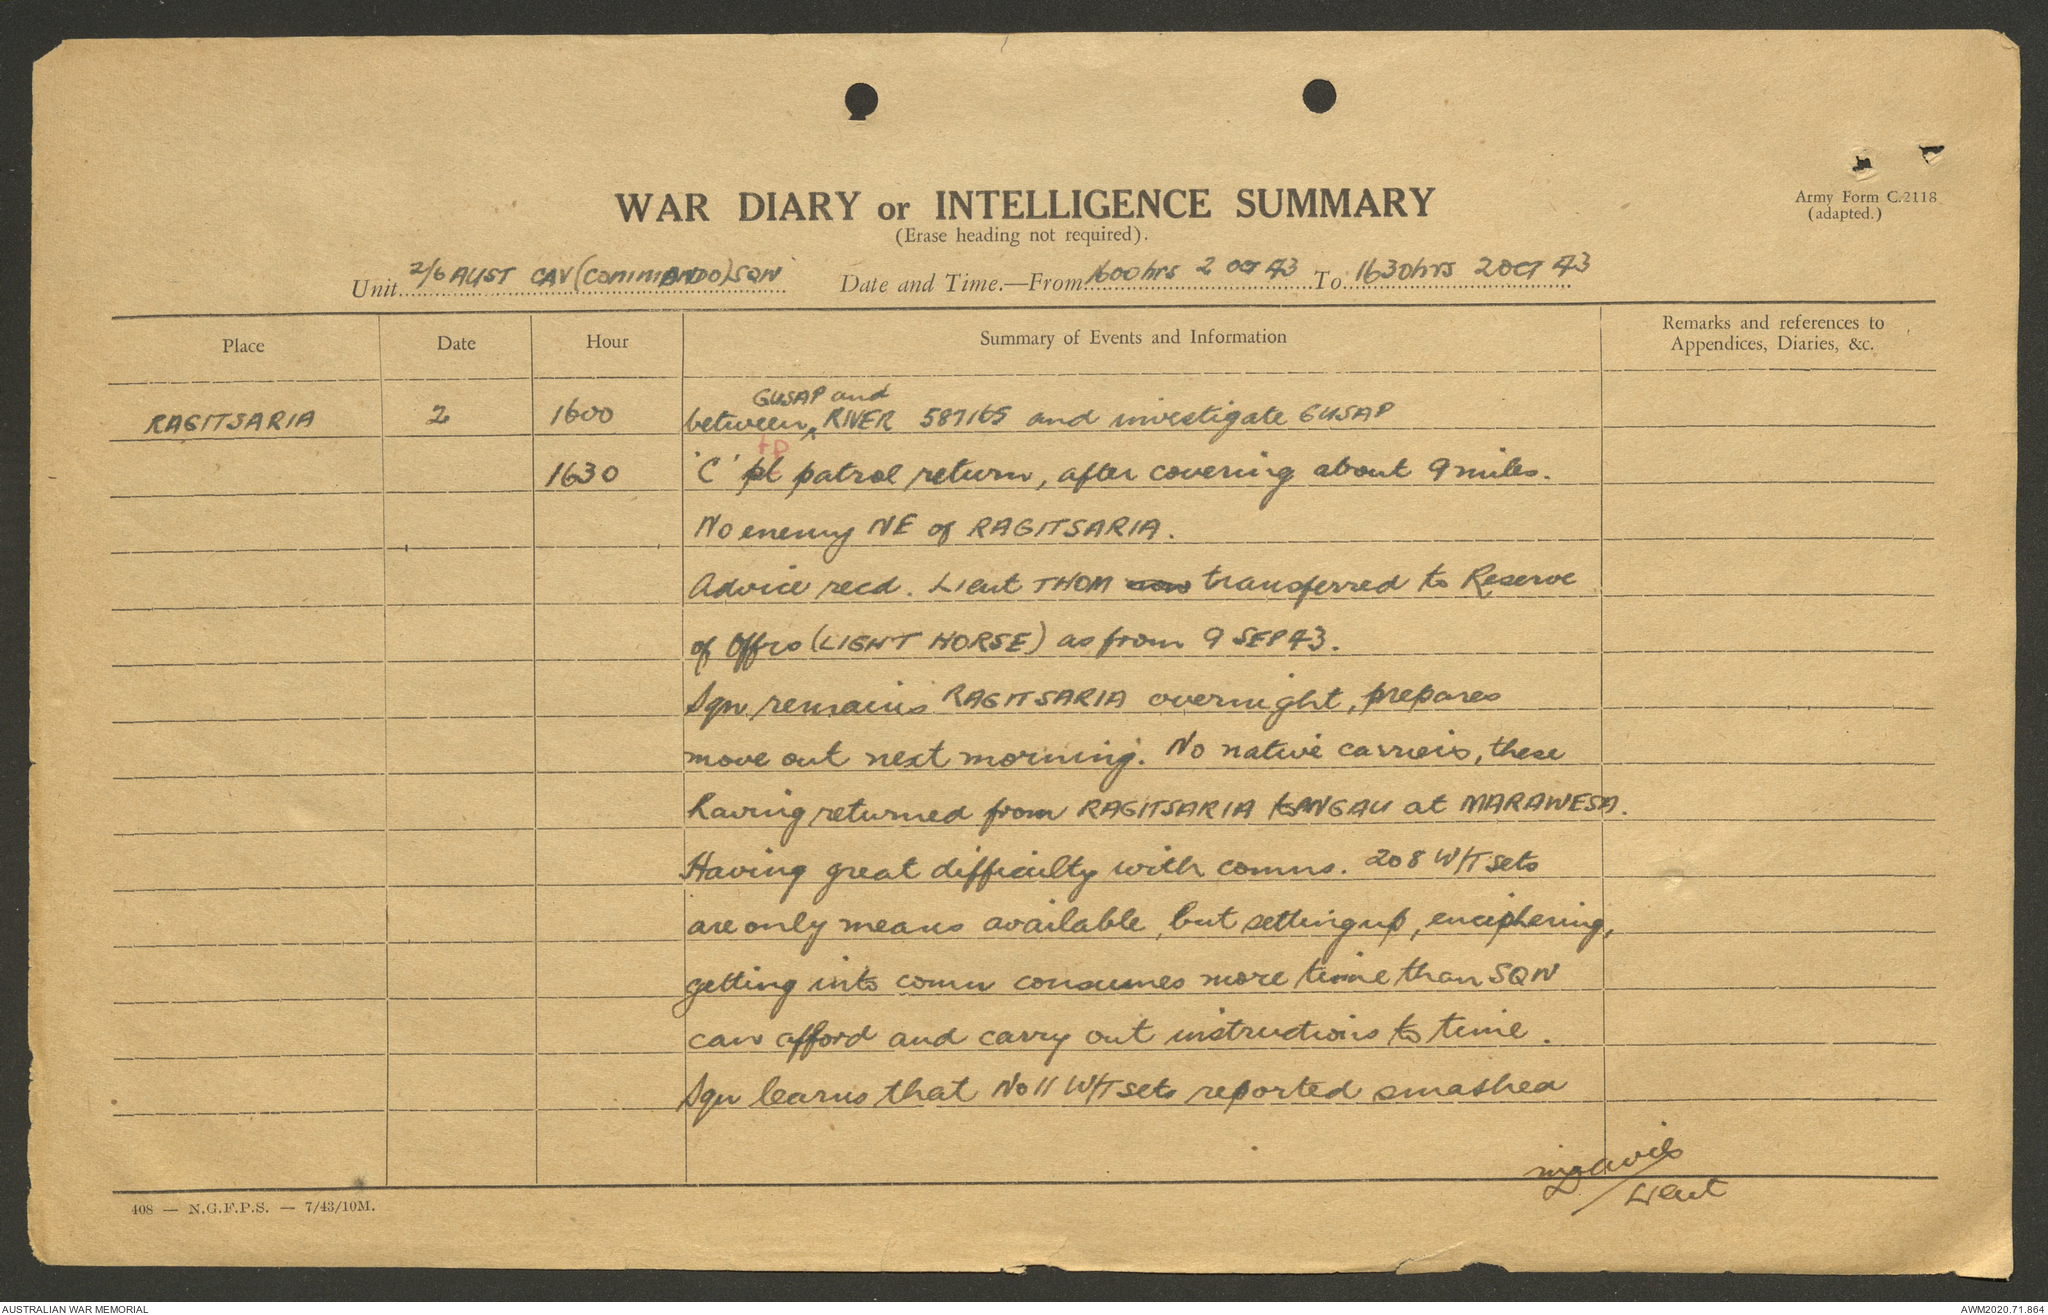 WAR DIARY or INTELLIGENCE SUMMARY
(Erase heading not required).
Army Form C.2118
(adapted.)
Unit 2/6 AUST CAV (COMMANDO) SQN Date and Time.—From 1600hrs 2 OCT 43 To 1630hrs 2 OCT 43
Place Date Hour Summary of Events and Information Remarks and references to Appendices, Diaries, &c.
GUSAP and
RAGITSARIA 2 1600 between RIVER 587165 and investigate GUSAP
tp
1630 'C' pl patrol return, after covering about 9 miles.
No enemy NE of RAGITSARIA.
Advice recd. Lieut THOM transferred to Reserve
of Offrs (LIGHT HORSE) as from 9 SEP 43.
Sqn remains RAGITSARIA overnight, prepares
move out next morning. No native carriers, these
having returned from RAGITSARIA to ANGAU at MARAWESA.
Having great difficulty with comns. 208 W/T sets
are only means available, but setting up, enciphering,
getting into comn consumes more time than SQN
can afford and carry out instructions to time.
Sqn learns that No 11 W/T sets reported smashed
Lieut
408 — N.G.F.P.S. — 7/43/10M.
AUSTRALIAN WAR MEMORIAL
AWM2020.71.864